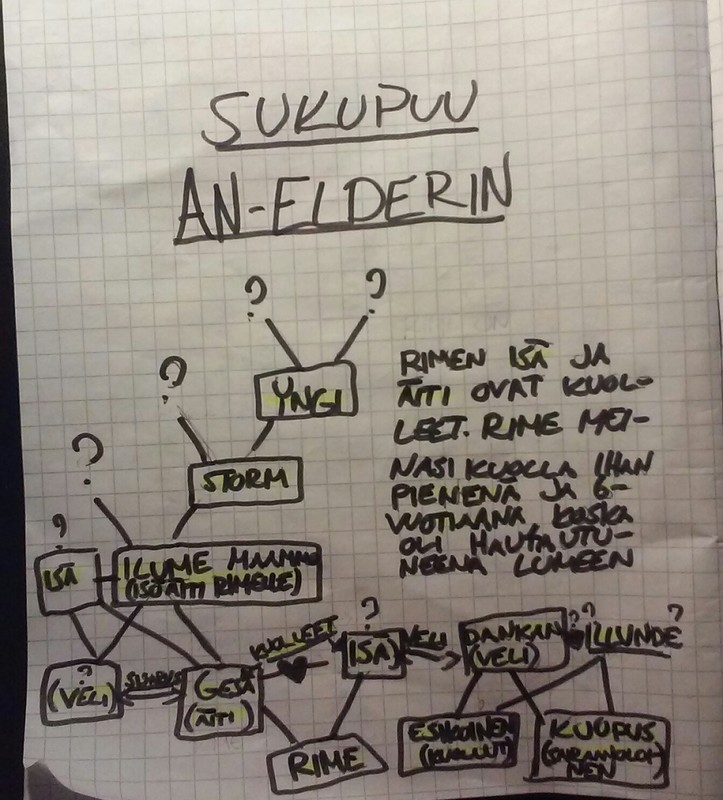 SUKUPUU
AN-ELDERIN
? ?
YNGI
?
STORM
?
?
ISÄ
ILUME MAAMMO
(ISOÄITI RIMELLE)
RIMEN ISÄ JA
ÄITI OVAT KUOL-
LEET. RIME MEI-
NASI KUOLLA IHAN
PIENENÄ JA 6-
VUOTIAANA KOSKA
OLI HAUTAUTU-
NEENA LUMEEN
?
(VELI)
SISARUS
GESA
(ÄITI)
KUOLLEET
?
ISÄ
VELI
DANKAN
(VELI)
??
ILUNDE?
RIME
ESIKOINEN
(KUOLLUT)
KUUPUS